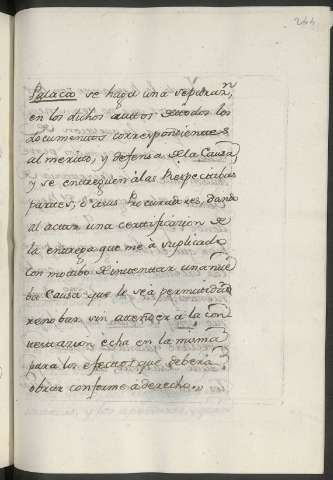 244
Palacio se haga una separaon
en los dichos autos de todos los
documentos correspondientes
al merito, y defensa de la Causa,
y se entreguen álas Respectibas
partes, ó asus Procuradores, dando
al actuar una certificacion de
la entrega que me á suplicado
con motibo de intentar una nue
ba Causa que le sea permitido
renobar sin atender á la con
testazion echa en la misma
para los efectos que deberá
obrar conforme aderecho.